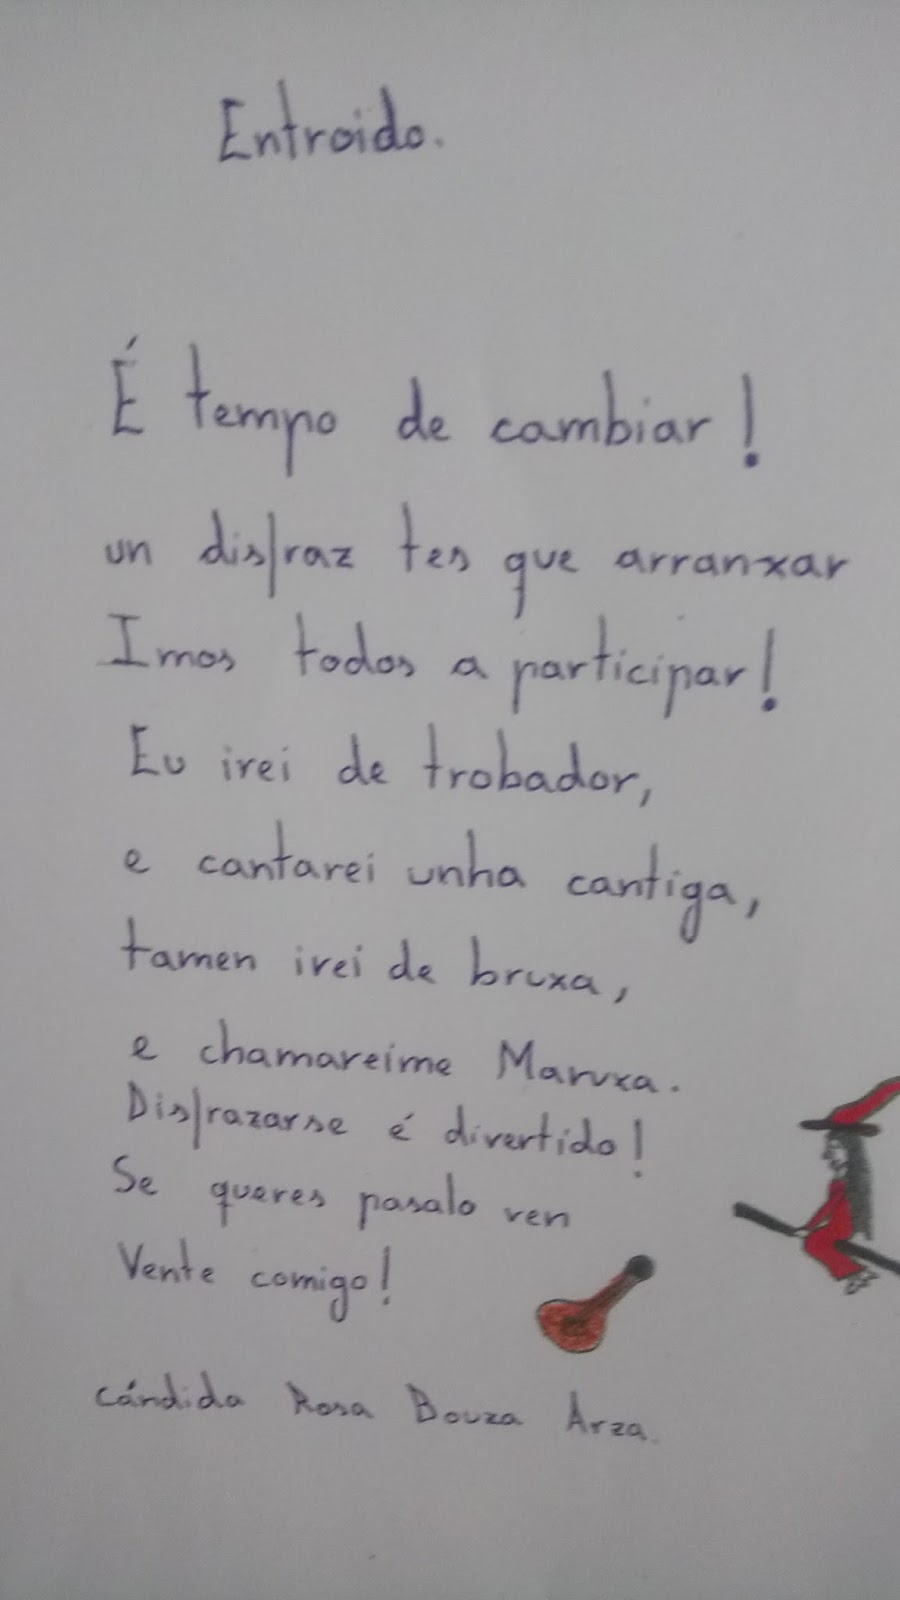 Entroido.
É tempo de cambiar!
un disfraz tes que arranxar
Imos todos a participar!
Eu irei de trobador,
e cantarei unha cantiga,
tamen irei de bruxa,
e chamareime Maruxa.
Disfrazarse é divertido!
Se queres pasalo ven
Vente comigo!
Cándida Rosa Bouza Arza.